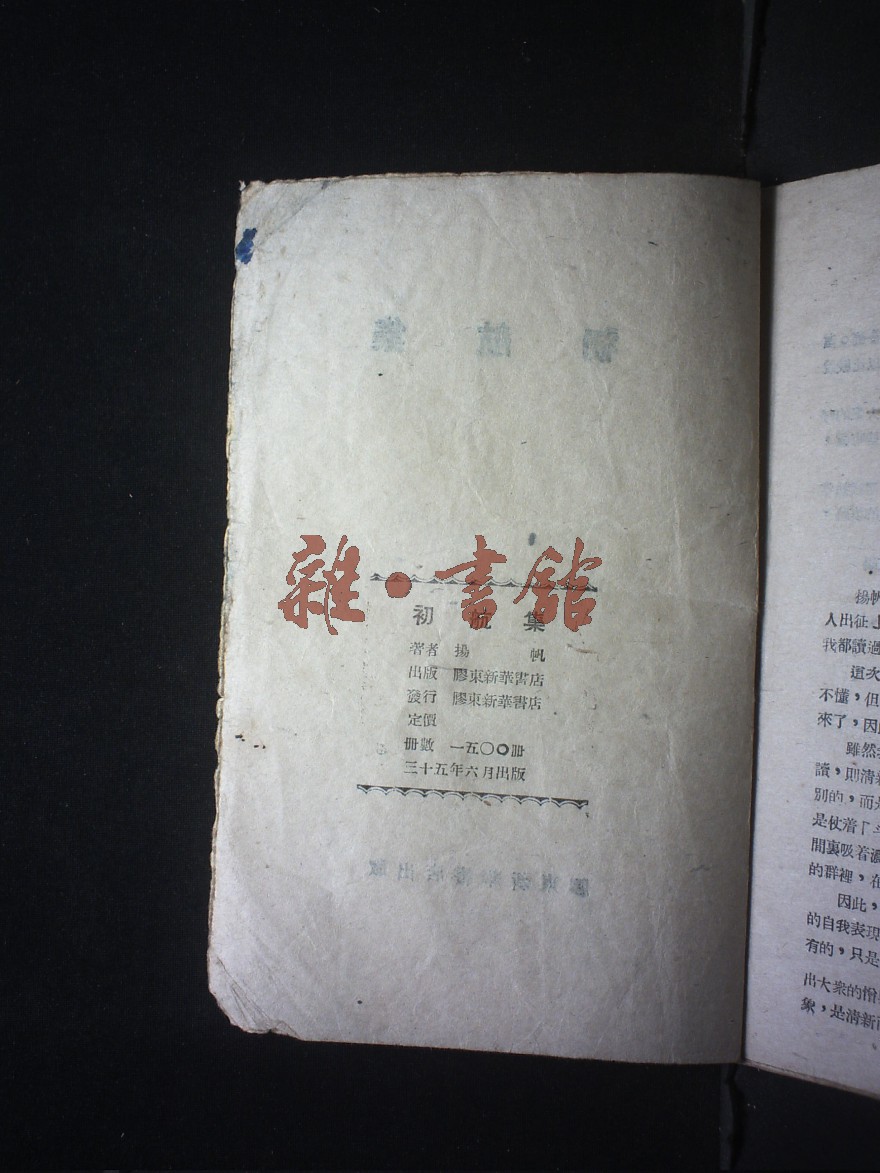 雜·書館
初航集
著者 揚帆
出版 膠東新華書店
發行 膠東新華書店
定價
冊數 一五〇〇冊
三十五年六月出版
揚帆
人出征」
我都讀過
這次
不懂，但
來了，因
雖然
讀，則清新
別的，而是
是仗着「
間裏吸着濃
的群裡，在
因此，
的自我表現
有的，只是
出大衆的憎
象，是清新